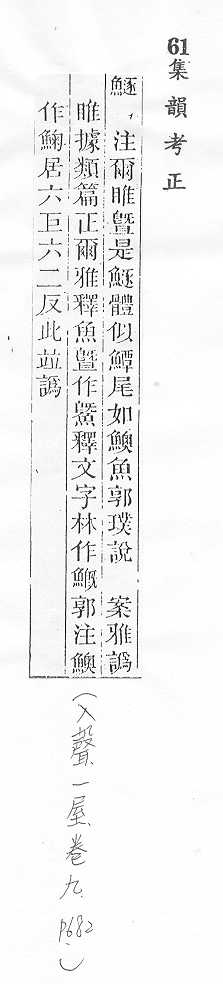 61集韻考正
鱁，注爾雎曁是鱁體似鱏尾如魚郭璞說　案雅譌
雎據類篇正爾雅釋魚曁作鱀釋文字林作郭注
作䱡居六巨六二反此並譌
(入聲、一屋、卷九、P682.)